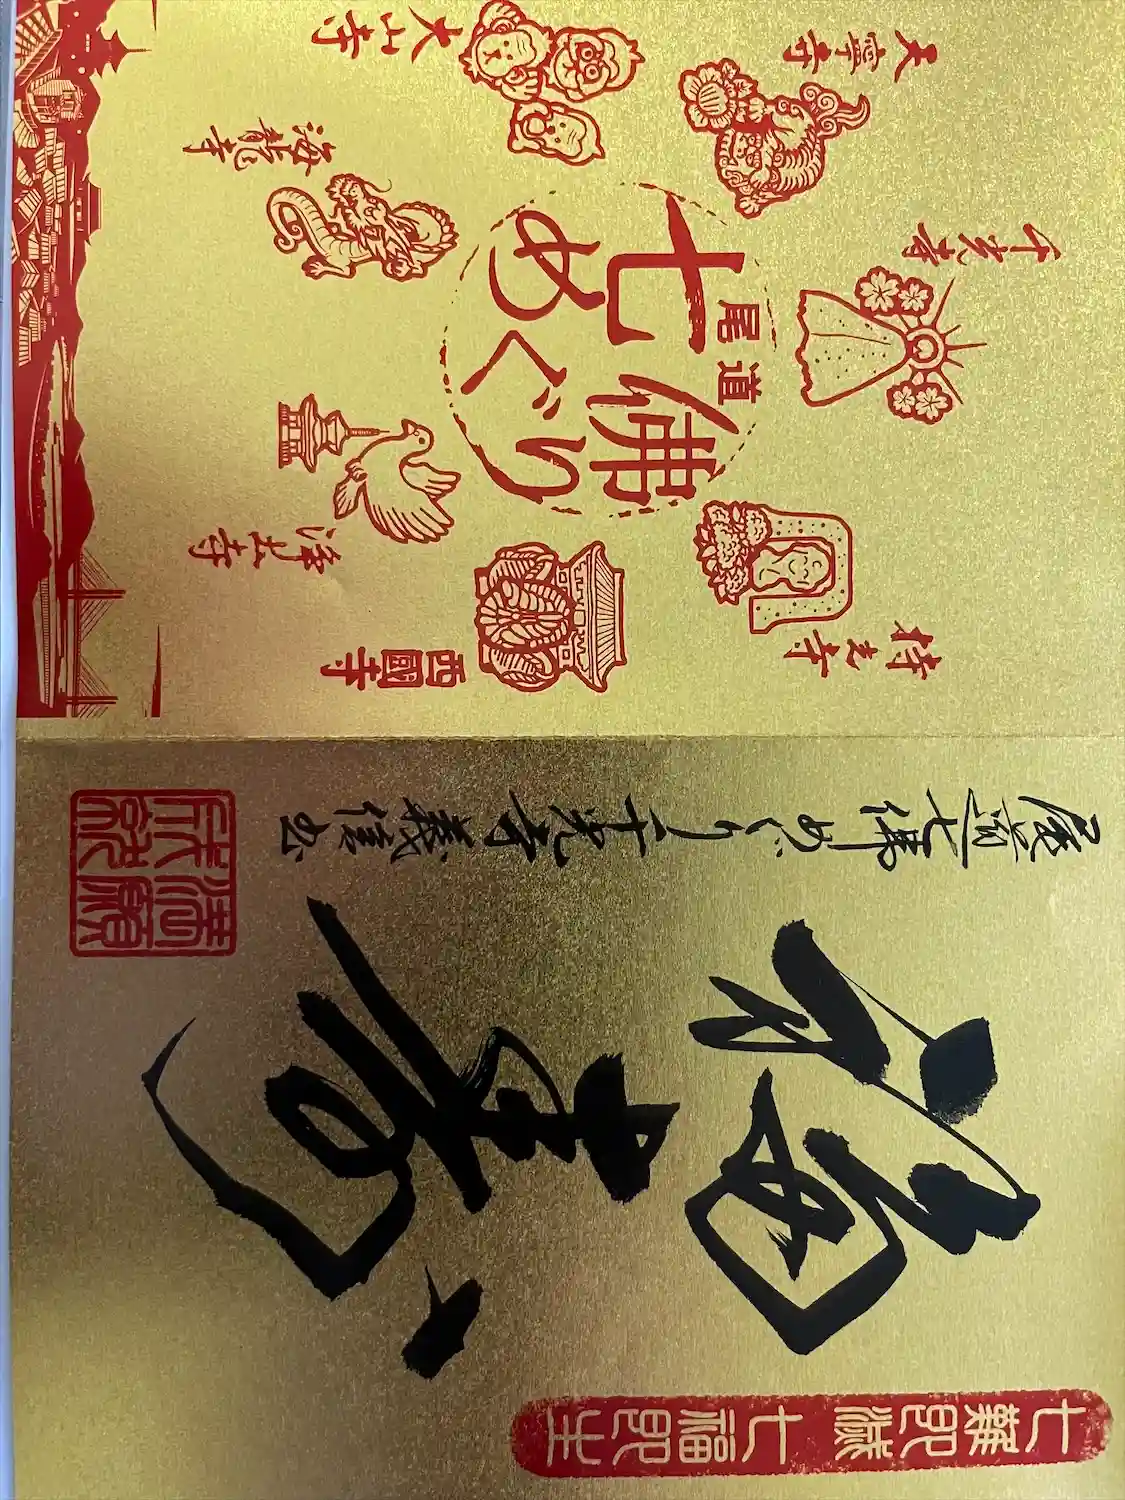 七難即滅 七福即生
福壽
尾道七佛めぐり 千光寺
満願成就
尾道
七佛
めぐり
千光寺
持光寺
天寧寺
西國寺
大山寺
浄土寺
海龍寺